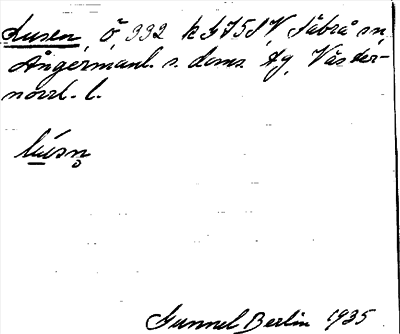 Lusen, ö 332 k G 75 SV Säbrå sn,
Ångermanl. s. doms. tg, Väster-
norrl. l.
lúsn̥
Gunnel Berlin 1935